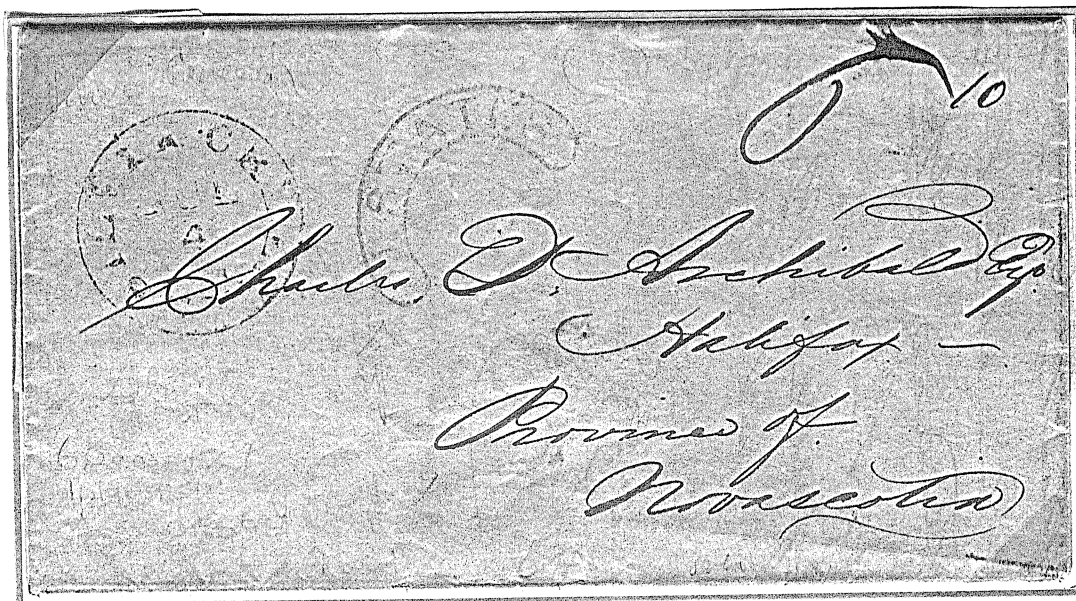 10
JUL
4
Charles. D. Archibald Esqr.
Halifax —
Province of
Novascotia